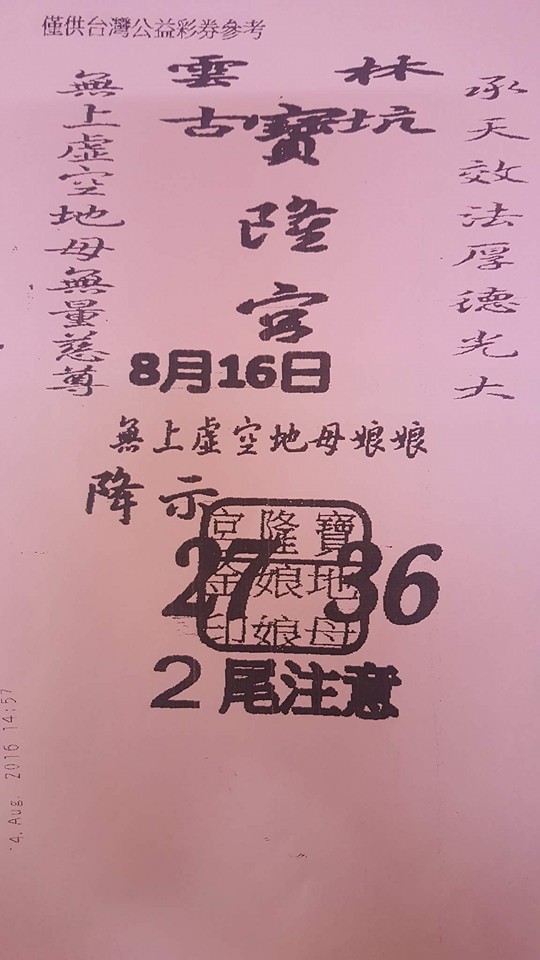 僅供台灣公益彩券參考
雲林
古坑
寶隆宮
承天效法厚德光大
無上虛空地母無量慈尊
8月16日
無上虛空地母娘娘
降示
寶隆宮
地娘金
母娘印
27 36
2尾注意
4.Aug. 2016 14:57